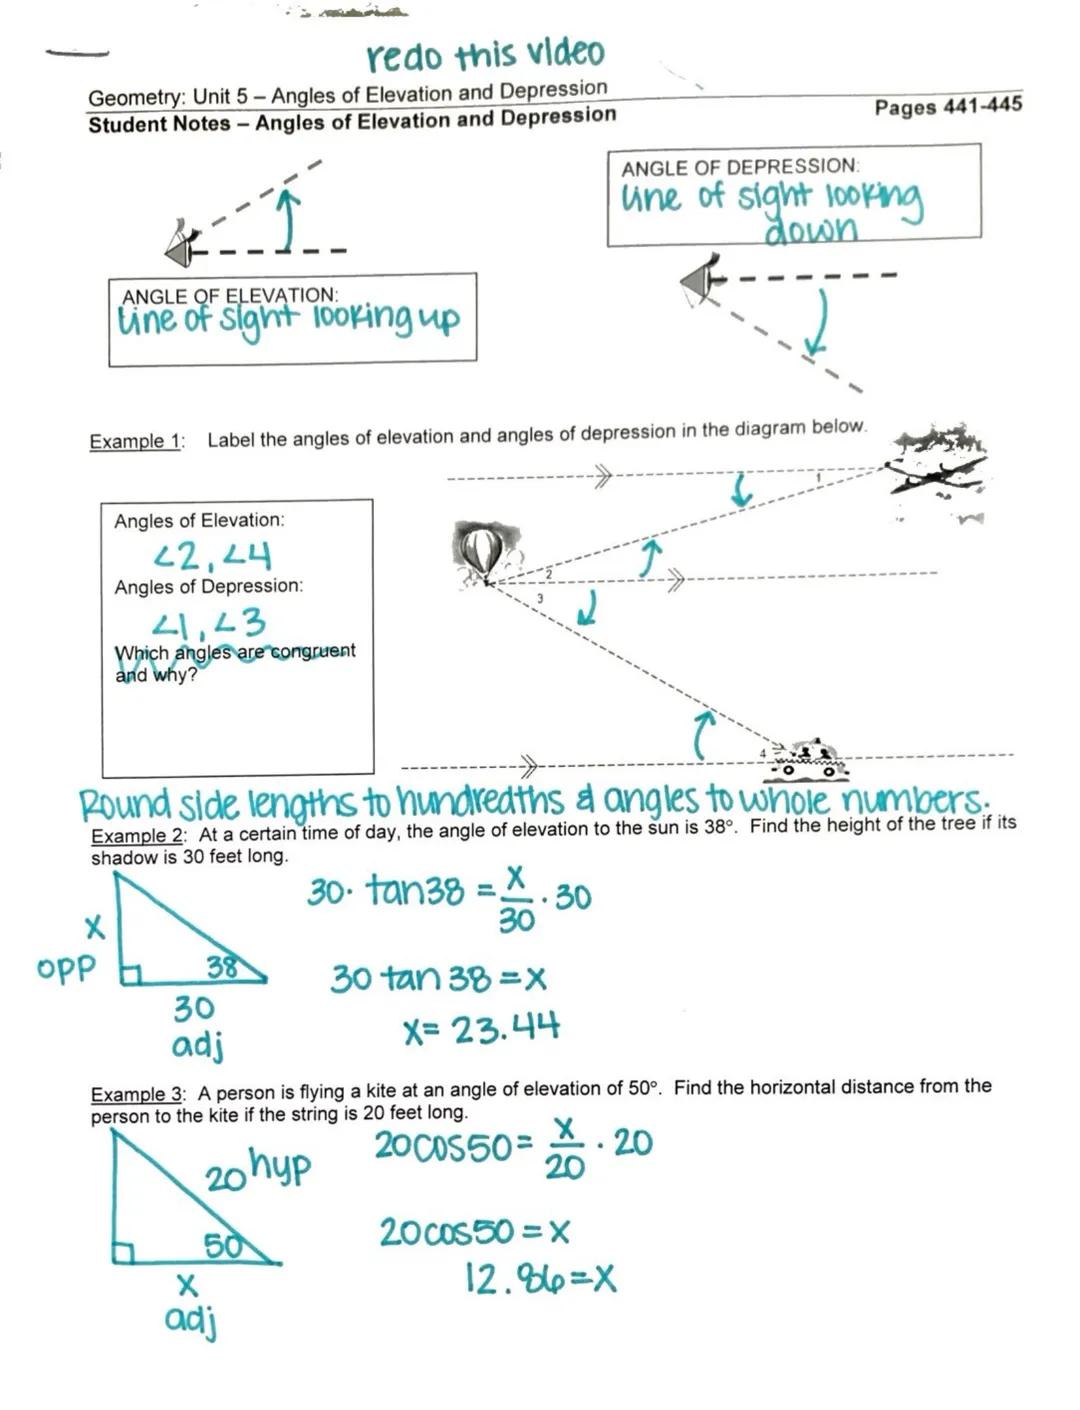 redo this video
Geometry: Unit 5 – Angles of Elevation and Depression
Student Notes – Angles of Elevation and Depression
Pages 441-445
ANGLE OF DEPRESSION:
Line of sight looking
down
ANGLE OF ELEVATION:
Line of sight looking up
Example 1: Label the angles of elevation and angles of depression in the diagram below.
1
2
3
4
Angles of Elevation:
∠2, ∠4
Angles of Depression:
∠1, ∠3
Which angles are congruent
and why?
Round side lengths to hundredths & angles to whole numbers.
Example 2: At a certain time of day, the angle of elevation to the sun is 38°. Find the height of the tree if its
shadow is 30 feet long.
x
opp
38
30
adj
30 · tan38 = x/30 · 30
30 tan 38 = x
x = 23.44
Example 3: A person is flying a kite at an angle of elevation of 50°. Find the horizontal distance from the
person to the kite if the string is 20 feet long.
20 hyp
50
x
adj
20cos50 = x/20 · 20
20cos50 = x
12.86 = x